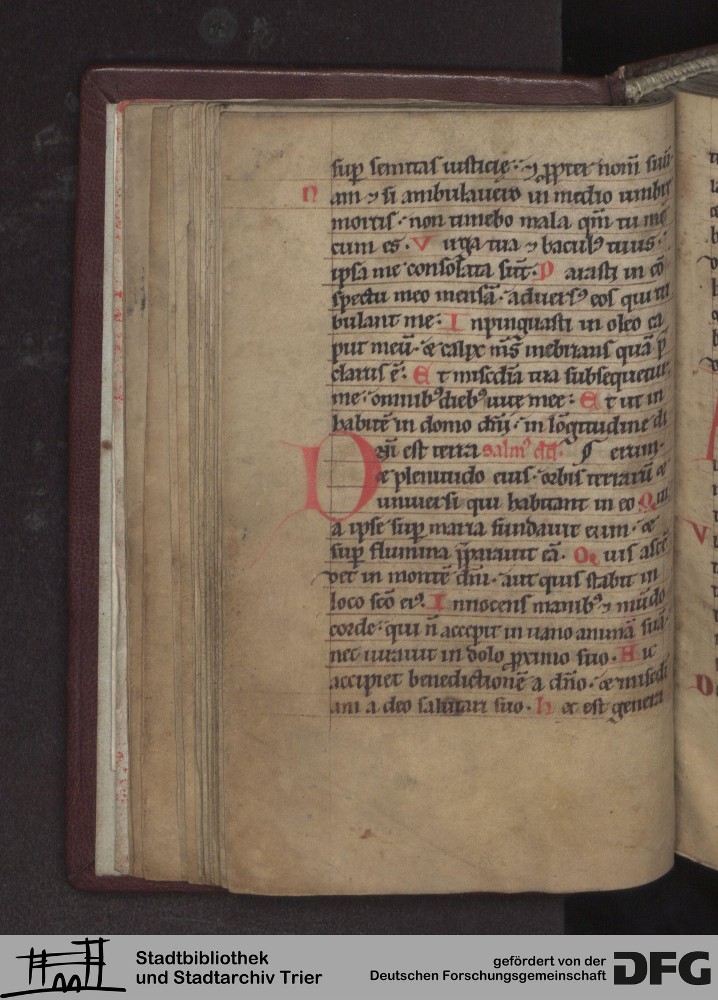 sup semitas iusticie · ⁊ ꝓpter nom̄ suū
N am ⁊ si ambulauero in medio umbre
mortis · non timebo mala qm̄ tu me
cum es · V irga tua ⁊ baculꝰ tuus ·
ipsa me consolata sūt · P arasti in cō
spectu meo mensā · aduersꝰ eos qui tri
bulant me · I npinguasti in oleo ca
put meū · ⁊ calix mꝰs inebrians quā p̄
clarus ē · E t misc̄dia tua subsequetur
me · omnibꝰ diebꝰ uite mee · E t ut in
habitē in domo dn̄i · in lōgitudinē di
D n̄i est terra eius ·
et plenitudo eius · orbis terrarū et
uniuersi qui habitant in eo Q ui
a ipse sup maria fundauit eum · et
sup flumina p̄parauit eū · Q uis ascē
det in montē dn̄i · aut quis stabit in
loco scō eiꝰ · I nnocens manibꝰ ⁊ mūdo
corde · qui n̄ accepit in uano animā suā ·
nec iurauit in dolo ꝓximo suo · H ic
accipiet benedictionē a dn̄o · et mis̄di
am a deo salutari suo · H ec est genera
Stadtbibliothek
und Stadtarchiv Trier
gefördert von der
Deutschen Forschungsgemeinschaft
DFG